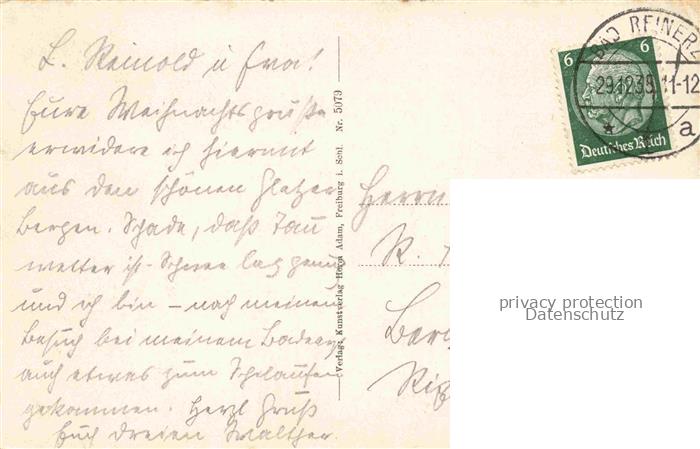 L. Reinold u Eva!
Eure Weihnachtsgrüße
erwidere ich hiermit
aus den schönen Glatzer
Bergen. Schade, daß Tau
wetter ist. Schnee lag genug
und ich bin – nach meinem
Besuch bei meinem Badearzt
auch etwas zum Schilaufen
gekommen. Herzl Gruß
Euch dreien Walther.
Verlag: Kunstverlag Herm Adam, Freiburg i. Schl. Nr. 5079
BAD REINERZ
29.12.38.11-12
a
6 6
Deutsches Reich
Herrn
R.
privacy protection
Datenschutz